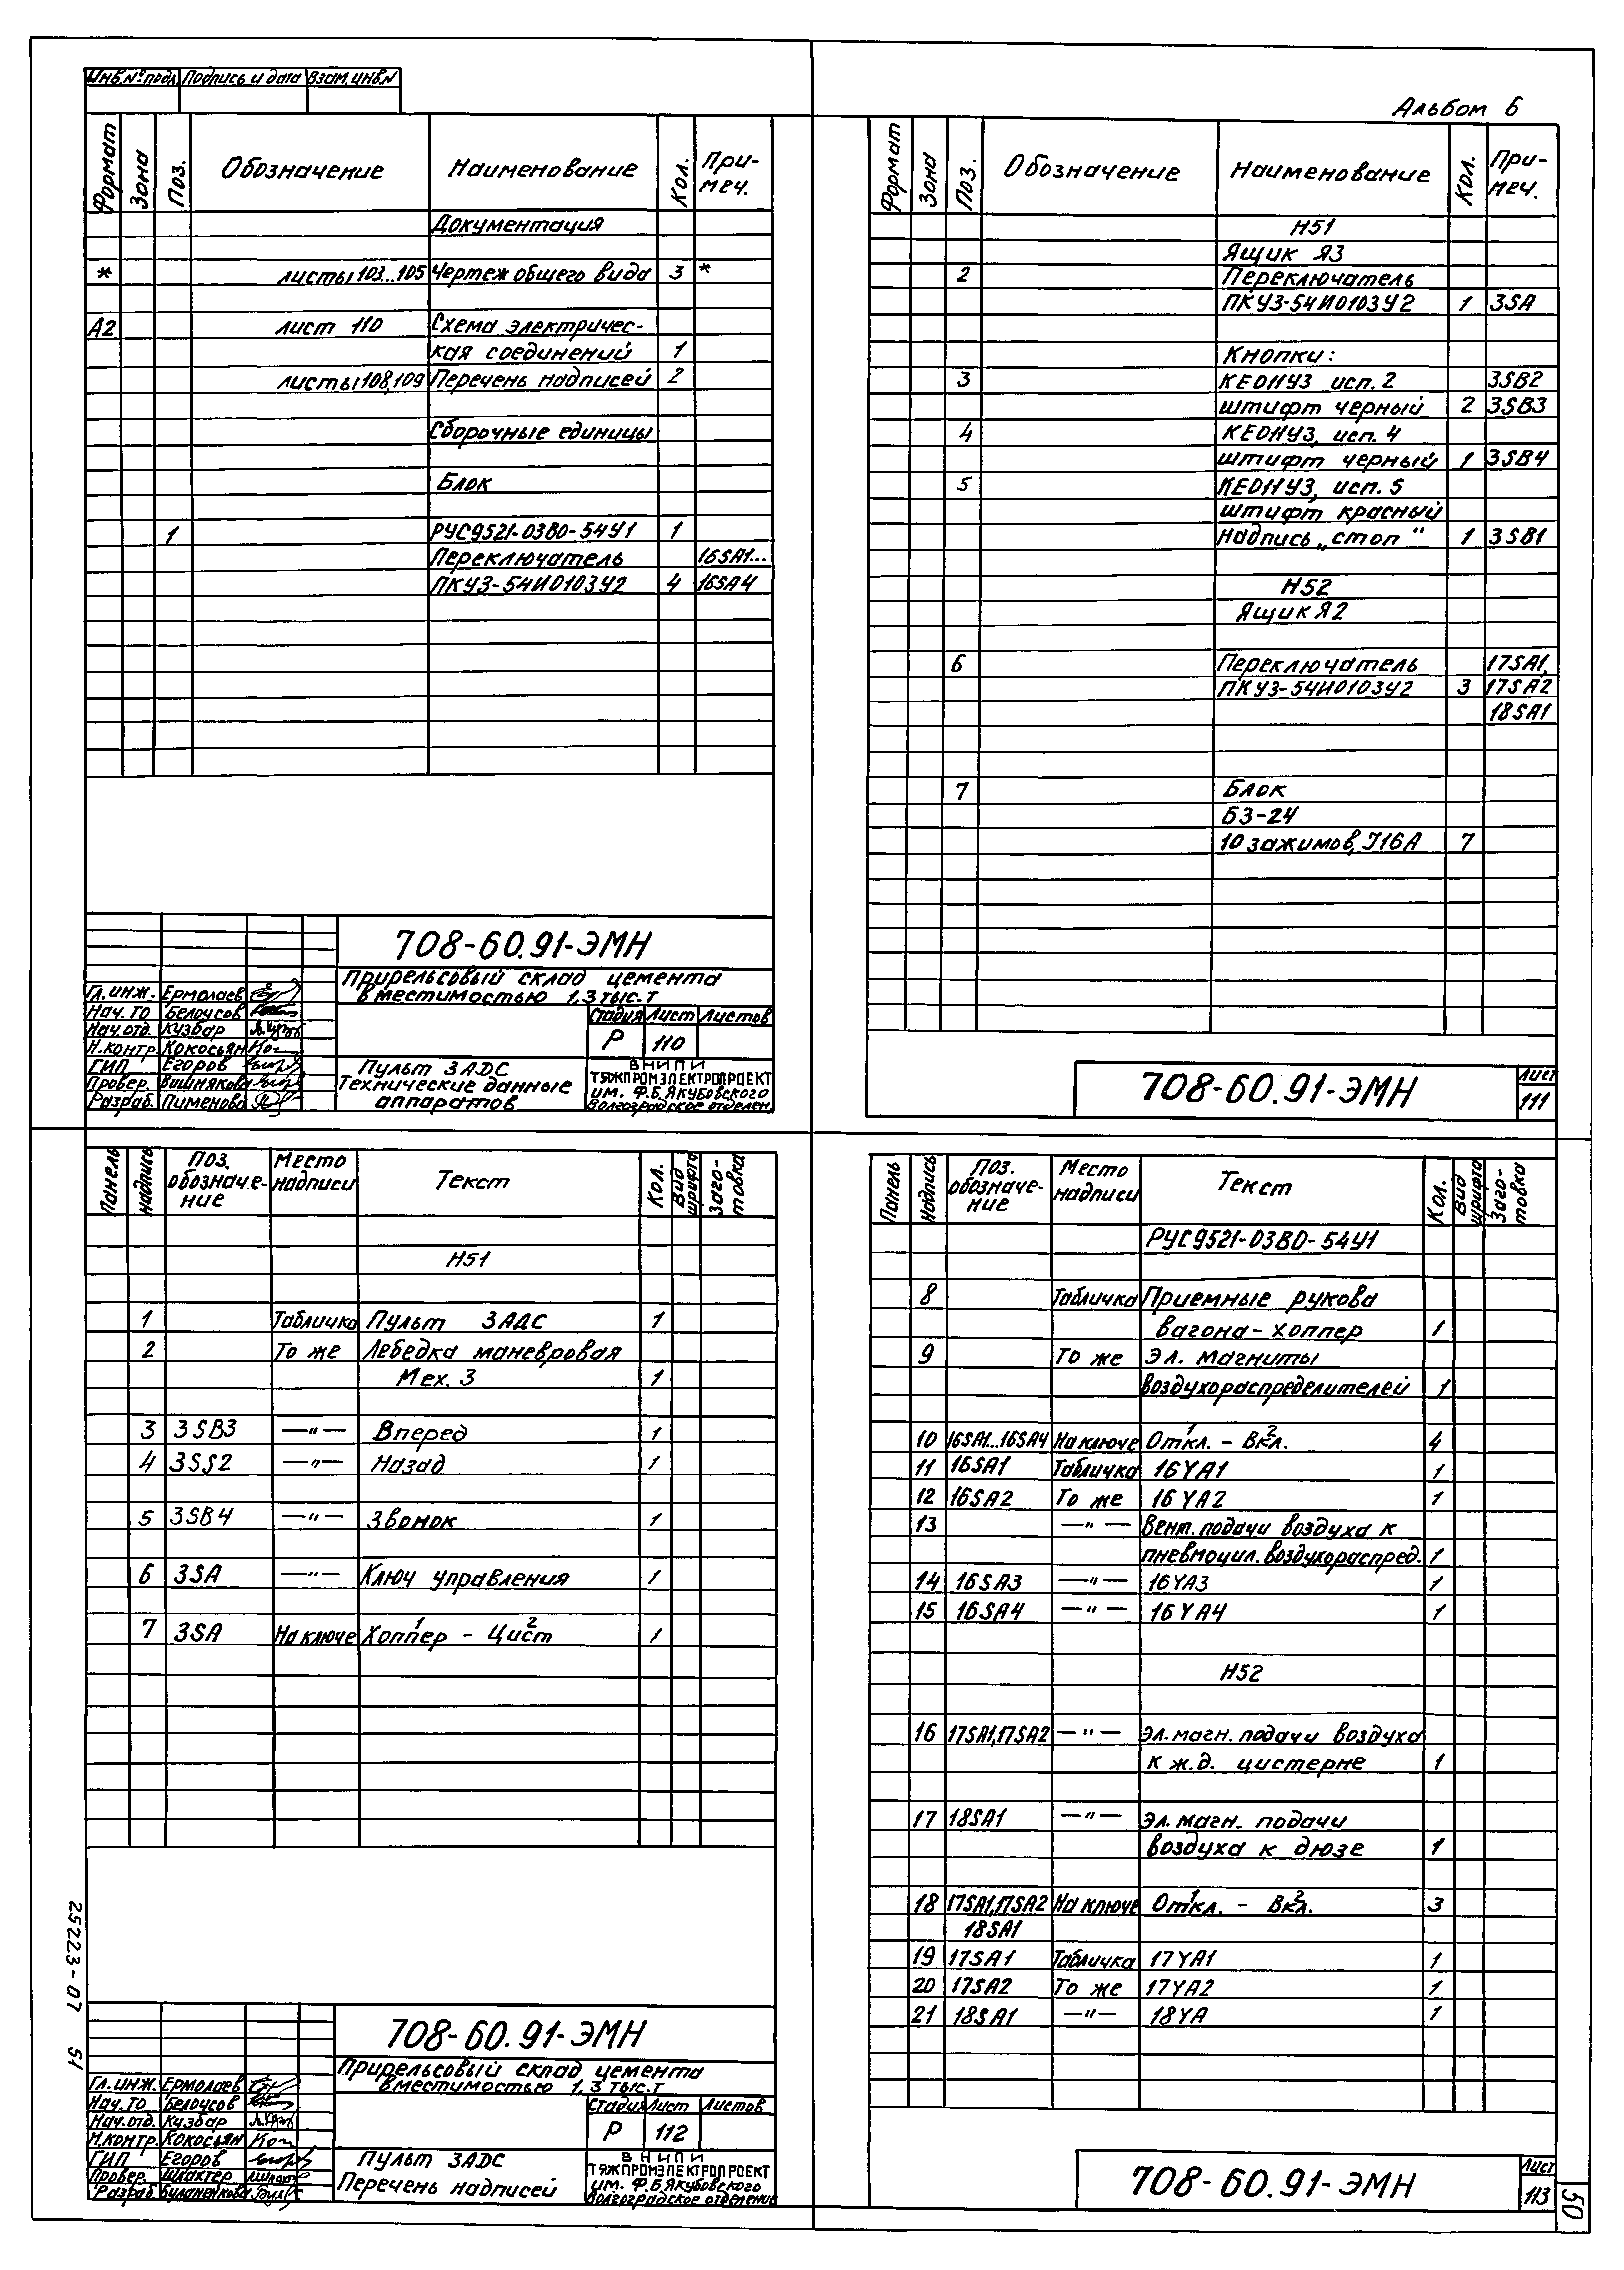 Инв.№ подл. Подпись и дата Взам.инв.N
Формат Зона Поз. Обозначение Наименование Кол. При-
меч.
Документация
* листы 103...105 Чертеж общего вида 3 *
А2 лист 110 Схема электричес-
кая соединений 1
листы 108,109 Перечень надписей 2
Сборочные единицы
Блок
1 РУС9521-03В0-54У1 1
Переключатель 16SA1...
ПКУ3-54И0103У2 4 16SA4
708-60.91-ЭМН
Прирельсовый склад цемента
вместимостью 1,3 тыс.т
Гл.инж. Ермолаев
Нач.ТО Белоусов
Нач.отд. Кузбар
Н.контр. Кокосьян
ГИП Егоров
Провер. Вишнякова
Разраб. Пименова
Стадия Лист Листов
Р 110
Пульт 3АДС
Технические данные
аппаратов
ВНИПИ
ТЯЖПРОМЭЛЕКТРОПРОЕКТ
им. Ф.Б.Якубовского
Волгоградское отделен.
Альбом 6
Формат Зона Поз. Обозначение Наименование Кол. При-
меч.
Н51
Ящик Я3
2 Переключатель
ПКУ3-54И0103У2 1 3SA
Кнопки:
3 КЕ011У3 исп. 2 3SB2
штифт черный 2 3SB3
4 КЕ011У3, исп. 4
штифт черный 1 3SB4
5 КЕ011У3, исп. 5
штифт красный
надпись „стоп" 1 3SB1
Н52
Ящик Я2
6 Переключатель 17SA1,
ПКУ3-54И0103У2 3 17SA2
18SA1
7 Блок
БЗ-24
10 зажимов, J16А 7
708-60.91-ЭМН
Лист
111
Панель Надпись Поз. обозначе-
ние Место
надписи Текст Кол. Вид
шрифта Заго-
товка
Н51
1 Табличка Пульт 3АДС 1
2 То же Лебедка маневровая
Мех. 3 1
3 3SB3 —"— Вперед 1
4 3SS2 —"— Назад 1
5 3SB4 —"— Звонок 1
6 3SA —"— Ключ управления 1
1 2
7 3SA На ключе Хоппер - Цист 1
25223-07 51
708-60.91-ЭМН
Прирельсовый склад цемента
вместимостью 1,3 тыс.т
Гл.инж. Ермолаев
Нач.ТО Белоусов
Нач.отд. Кузбар
Н.контр. Кокосьян
ГИП Егоров
Провер. Шлахтер
Разраб. Буланенкова
Стадия Лист Листов
Р 112
Пульт 3АДС
Перечень надписей
ВНИПИ
ТЯЖПРОМЭЛЕКТРОПРОЕКТ
им. Ф.Б.Якубовского
Волгоградское отделение
Панель Надпись Поз.
обозначе-
ние Место
надписи Текст Кол. Вид
шрифта Заго-
товка
РУС9521-03В0-54У1
8 Табличка Приемные рукова
вагона-хоппер 1
9 То же Эл. магниты
воздухораспределителей 1
1 2
10 16SA1...16SA4 На ключе Откл. - Вкл. 4
11 16SA1 Табличка 16YA1 1
12 16SA2 То же 16YA2 1
13 —"— Вент. подачи воздуха к
пневмоцил. воздухораспред. 1
14 16SA3 —"— 16YA3 1
15 16SA4 —"— 16YA4 1
Н52
16 17SA1,17SA2 —"— Эл.магн. подачи воздуха
к ж.д. цистерне 1
17 18SA1 —"— Эл.магн. подачи
воздуха к дюзе 1
1 2
18 17SA1,17SA2 На ключе Откл. - Вкл. 3
18SA1
19 17SA1 Табличка 17YA1 1
20 17SA2 То же 17YA2 1
21 18SA1 —"— 18YA 1
708-60.91-ЭМН
Лист
113
50